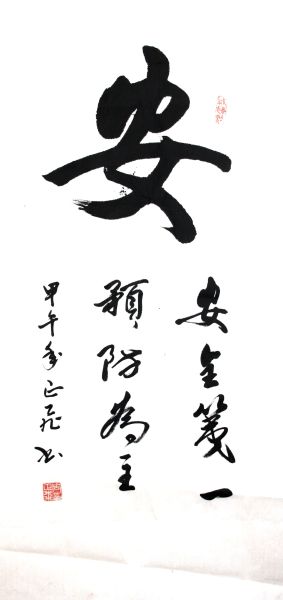 安
安全第一
預防為主
甲午年正书